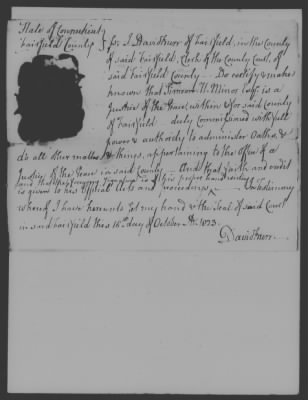 State of Connecticut
Fairfield County } ss. I David Burr of Fairfield, in the County
of said Fairfield, Clerk of the County Court, of
said Fairfield County — Do certify & make
known that U. Minor Esqr. is a
Justice of the Peace, within & for said County
of Fairfield duly Commissioned with full
power & authority to administer Oaths, &
do all other matters & things, appertaining to the office of a
Justice of the Peace in said County — And that faith and credit
and that the foregoing signature is of his proper hand writing
is given to his Official Acts and procedures ^ In testimony
whereof I have hereunto set my hand & the Seal of said Court
in said Fairfield this 16th day of October AD. 1823.
David Burr